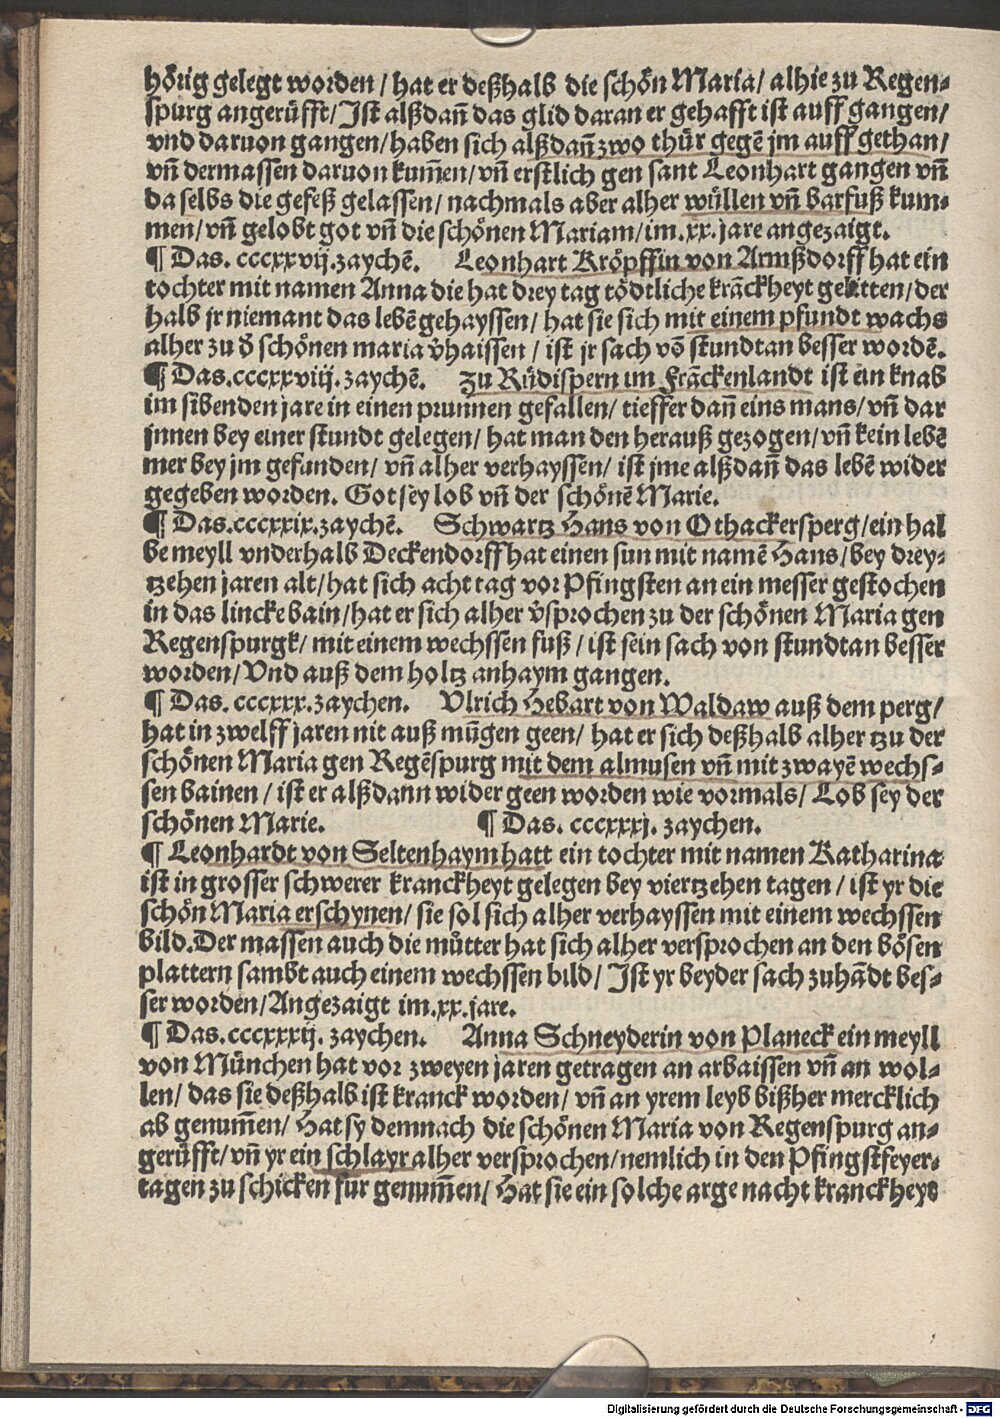 hörig gelegt worden / hat er deßhalb die schön Maria / alhie zu Regen-
spurg angerüfft / Ist alßdañ das glid daran er gehafft ist auff gangen /
vnd daruon gangen / haben sich alßdañ zwo thür gegẽ jm auff gethan /
vñ dermassen daruon kum̃en / vñ erstlich gen sant Leonhart gangen vñ
daselbs die gefeß gelassen / nachmals aber alher wüllen vñ barfuß kum-
men / vñ gelobt got vñ die schönen Mariam / im .xx. jare angezaigt.
¶ Das. cccxxvij. zaychẽ. Leonhart Kröpffin von Armßdorff hat ein
tochter mit namen Anna die hat drey tag tödtliche krãckheyt gelitten / der
halb jr niemant das lebẽ gehayssen / hat sie sich mit einem pfundt wachs
alher zu d̕ schönen maria v̕haissen / ist jr sach võ stundtan besser wordẽ.
¶ Das. cccxxviij. zaychẽ. Zu Rüdispern im Frãckenlandt ist ein knab
im sibenden jare in einen prunnen gefallen / tieffer dañ eins mans / vñ dar
jnnen bey einer stundt gelegen / hat man den herauß gezogen / vñ kein lebẽ
mer bey jm gefunden / vñ alher verhayssen / ist jme alßdañ das lebẽ wider
gegeben worden. Got sey lob vñ der schönẽ Marie.
¶ Das. cccxxix. zaychẽ. Schwartz Hans von Othackersperg / ein hal
be meyll vnderhalb Deckendorff hat einen sun mit namẽ Hans / bey drey-
tzehen jaren alt / hat sich acht tag vor Pfingsten an ein messer gestochen
in das lincke bain / hat er sich alher v̕sprochen zu der schönen Maria gen
Regenspurgk / mit einem wechssen fuß / ist sein sach von stundtan besser
worden / Vnd auß dem holtz anhaym gangen.
¶ Das. cccxxx. zaychen. Vlrich Hebart von Waldaw auß dem perg /
hat in zwelff jaren nit auß mügen geen / hat er sich deßhalb alher tzu der
schönen Maria gen Regẽspurg mit dem almusen vñ mit zwayẽ wechs-
sen bainen / ist er alßdann wider geen worden wie vormals / Lob sey der
schönen Marie. ¶ Das. cccxxxj. zaychen.
¶ Leonhardt von Seltenhaym hatt ein tochter mit namen Katharina
ist in grosser schwerer kranckheyt gelegen bey viertzehen tagen / ist yr die
schön Maria erschynen / sie sol sich alher verhayssen mit einem wechssen
bild. Der massen auch die můtter hat sich alher versprochen an den bösen
plattern sambt auch einem wechssen bild / Ist yr beyder sach zuhãdt bes-
ser worden / Angezaigt im .xx. jare.
¶ Das. cccxxxij. zaychen. Anna Schneyderin von Planeck ein meyll
von München hat vor zweyen jaren getragen an arbaissen vñ an wol-
len / das sie deßhalb ist kranck worden / vñ an yrem leyb bißher mercklich
ab genum̃en / Hat sy demnach die schönen Maria von Regenspurg an-
gerüfft / vñ yr ein schlayr alher versprochen / nemlich in den Pfingstfeyer-
tagen zu schicken fur genum̃en / Hat sie ein solche arge nacht kranckheyt
Digitalisierung gefördert durch die Deutsche Forschungsgemeinschaft - DFG